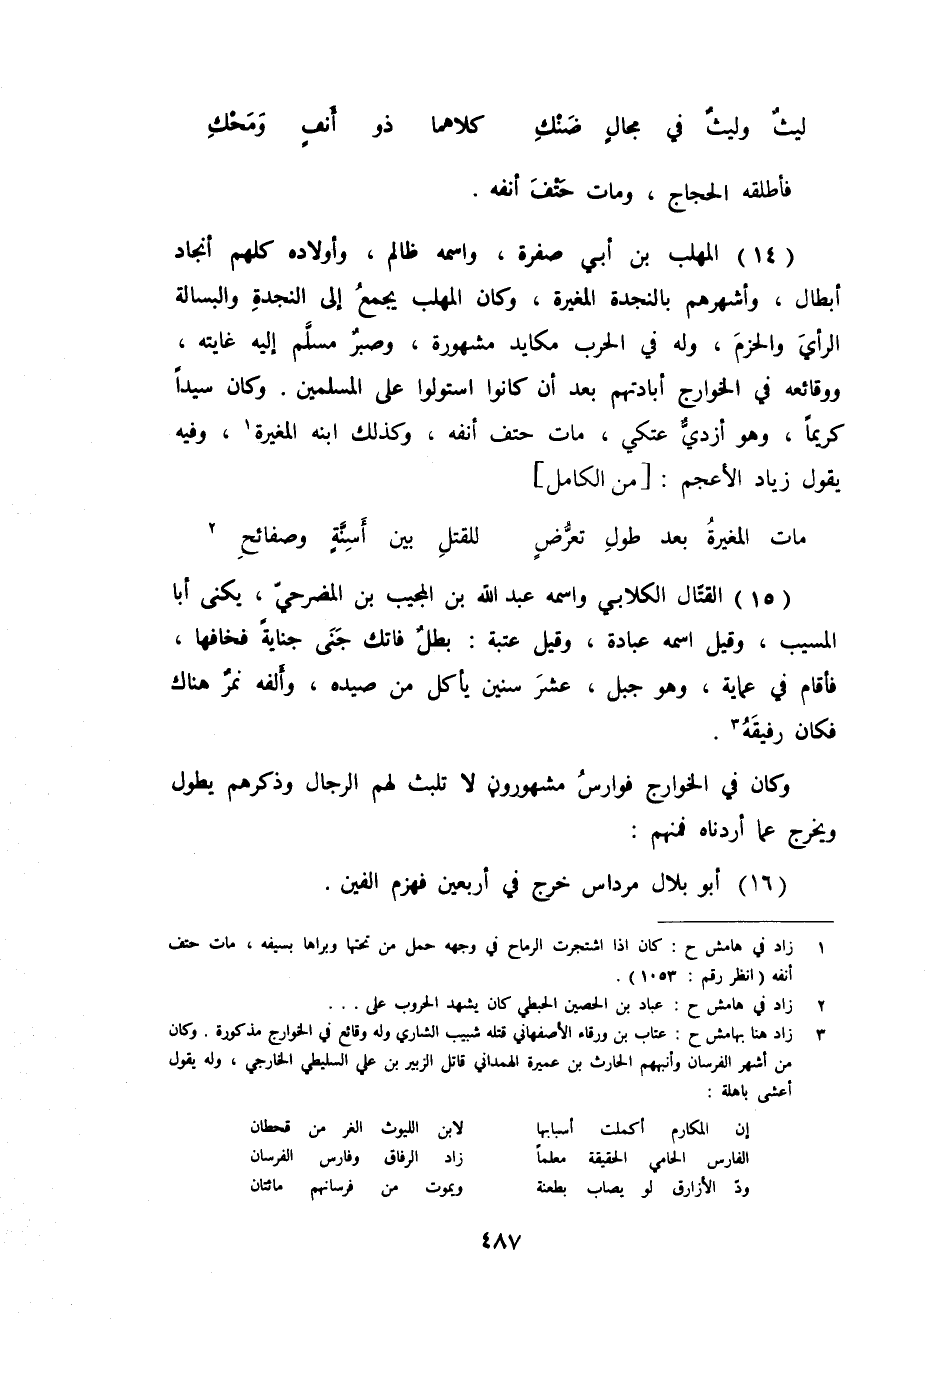 ليثٌ وليثٌ في مجالٍ ضَنْكِ كلاهما ذو أَنفٍ وَمَحْكِ
فأطلقه الحجاج ، ومات حَتْفَ أنفه .
(١٤) المهلب بن أبي صفرة ، واسمه ظالم ، وأولاده كلهم أنجاد
أبطال ، وأشهرهم بالنجدة المغيرة ، وكان المهلب يجمعُ إلى النجدةِ والبسالة
الرأيَ والحزمَ ، وله في الحرب مكايد مشهورة ، وصبرٌ مسلَّم إليه غايته ،
ووقائعه في الخوارج أبادتهم بعد أن كانوا استولوا على المسلمين . وكان سيداً
كريماً ، وهو أزديٌّ عتكي ، مات حتف أنفه ، وكذلك ابنه المغيرة١ ، وفيه
يقول زياد الأعجم : [من الكامل]
مات المغيرةُ بعد طولِ تعرُّضٍ للقتلِ بين أَسِنَّةٍ وصفائحِ ٢
(١٥) القتّال الكلابي واسمه عبد الله بن المجيب بن المضرحيّ ، يكنى أبا
المسيب ، وقيل اسمه عبادة ، وقيل عتبة : بطلٌ فاتك جَنَى جنايةً فخافها ،
فأقام في عماية ، وهو جبل ، عشرَ سنين يأكل من صيده ، وأَلفه نمرٌ هناك
فكان رفيقَهُ٣ .
وكان في الخوارج فوارسُ مشهورون لا تلبث لهم الرجال وذكرهم يطول
ويخرج عما أردناه فمنهم :
(١٦) أبو بلال مرداس خرج في أربعين فهزم الفين .
١ زاد في هامش ح : كان اذا اشتجرت الرماح في وجهه حمل من تحتها وبراها بسيفه ، مات حتف
أنفه (انظر رقم : ١٠٥٣) .
٢ زاد في هامش ح : عباد بن الحصين الحبطي كان يشهد الحروب على . . .
٣ زاد هنا بهامش ح : عتاب بن ورقاء الأصفهاني قتله شبيب الشاري وله وقائع في الخوارج مذكورة . وكان
من أشهر الفرسان وأنبههم الحارث بن عميرة الهمداني قاتل الزبير بن علي السليطي الخارجي ، وله يقول
أعشى باهلة :
إن المكارم أكملت أسبابها لابن الليوث الغر من قحطان
الفارس الحامي الحقيقة معلماً زاد الرفاق وفارس الفرسان
ودّ الأزارق لو يصاب بطعنة ويموت من فرسانهم مائتان
٤٨٧